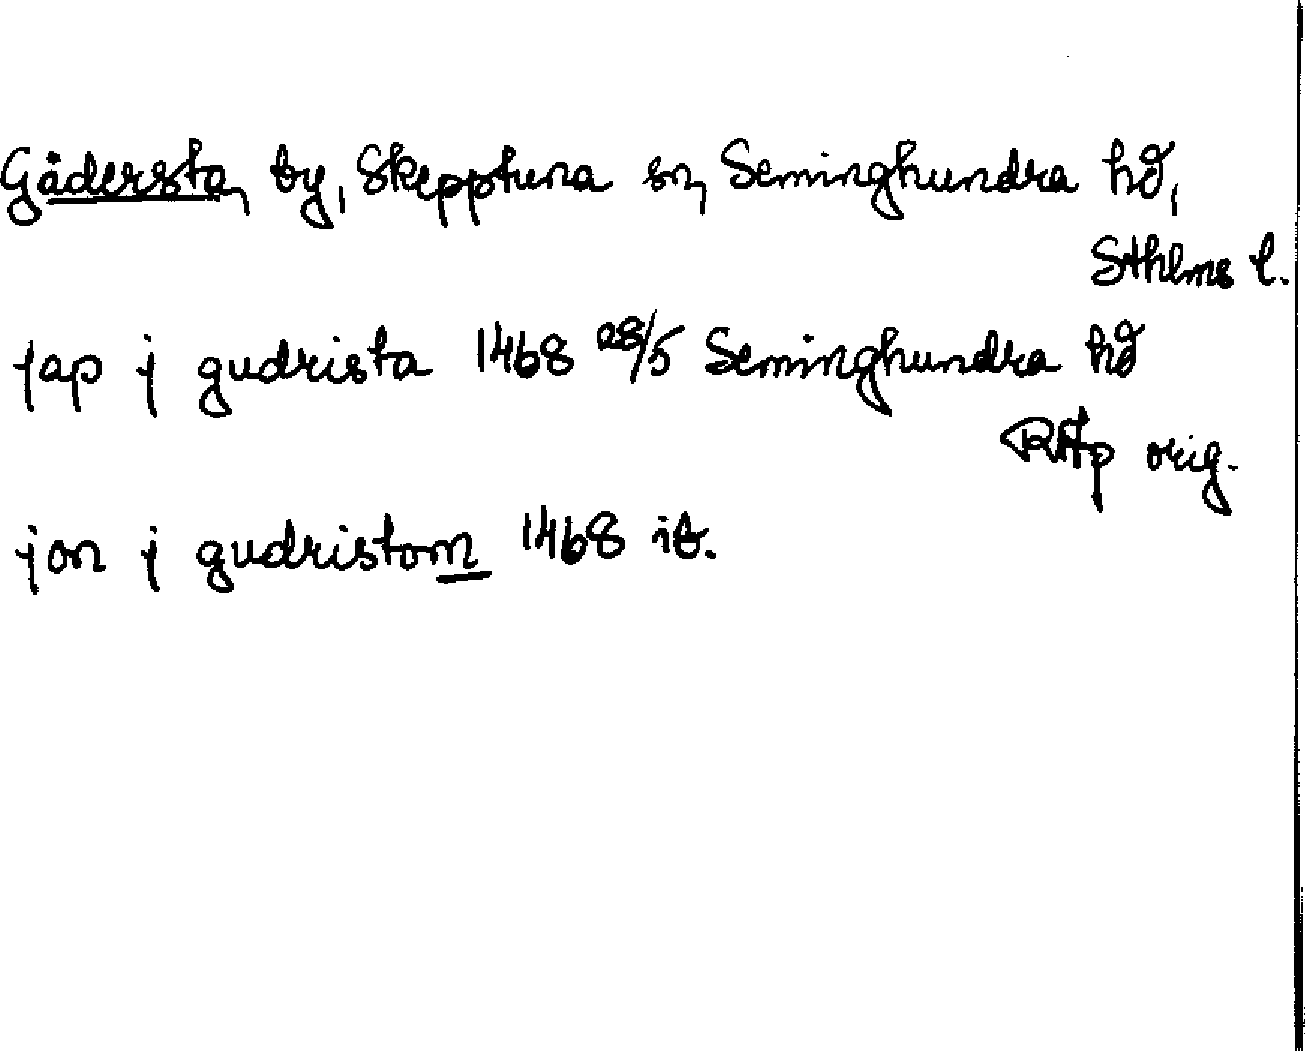 Gådersta, by, Skepptuna sn, Seminghundra hd,
Sthlms l.
jap j gudrista 1468 28/5 Seminghundra hd
RAp orig.
jon j gudristom 1468 ib.